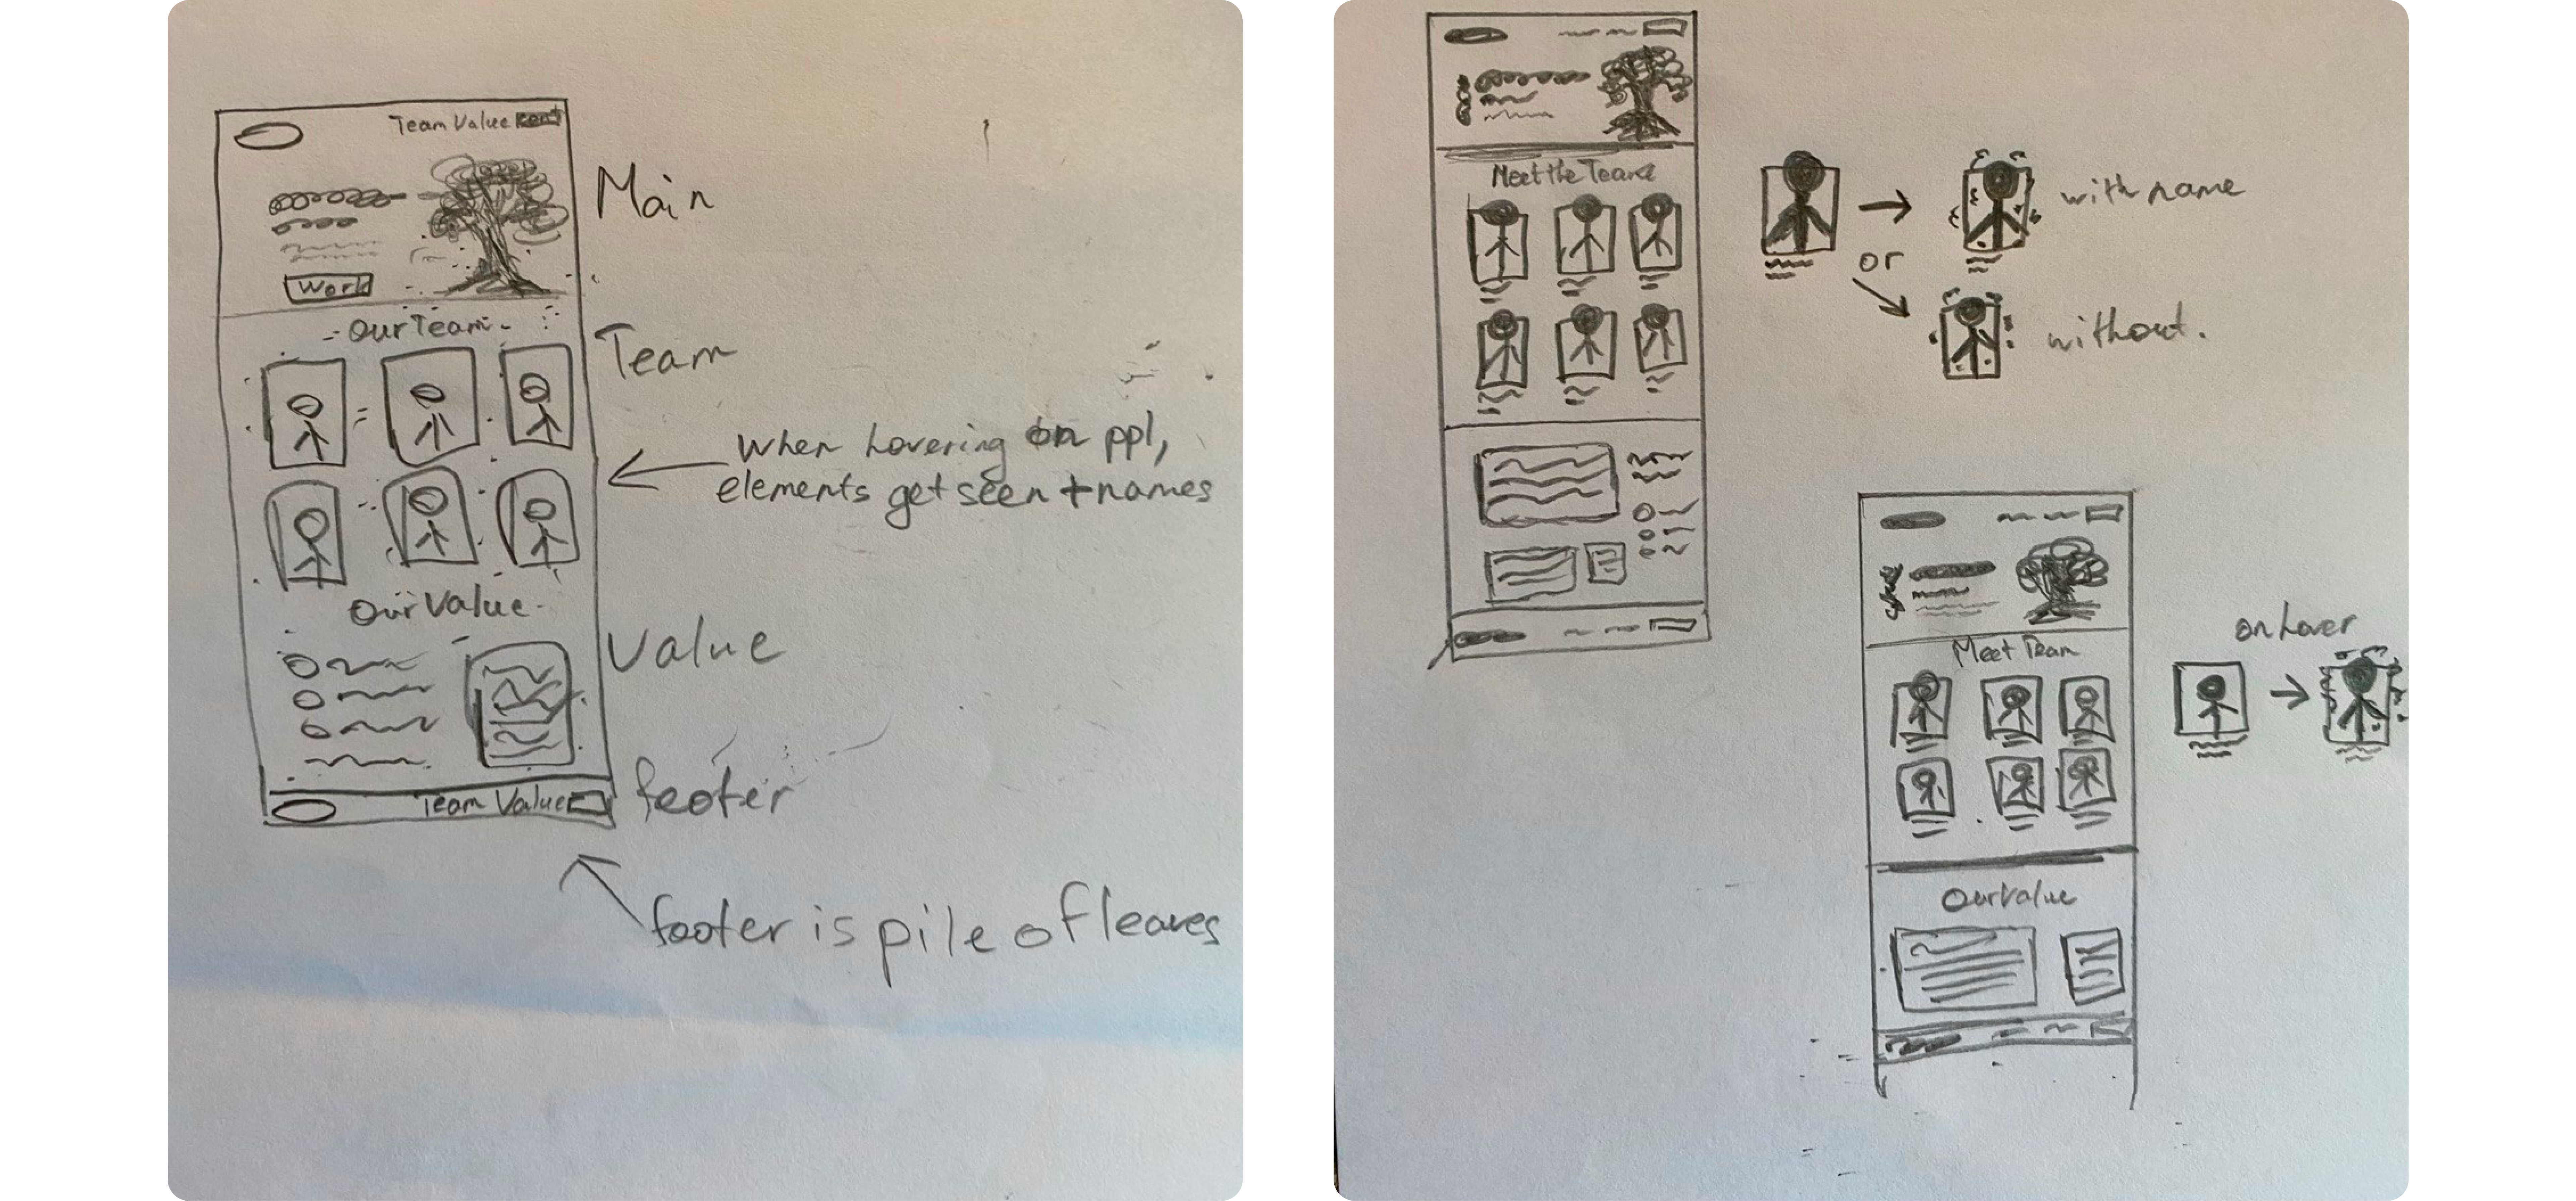 Team Value Cont
Main
Work
Our Team
Team
When hovering on ppl,
elements get seen + names
Our Value
Value
Team Value
footer
footer is pile of leaves
Meet the Team
with name
or
without.
on hover
Meet Team
Our Value